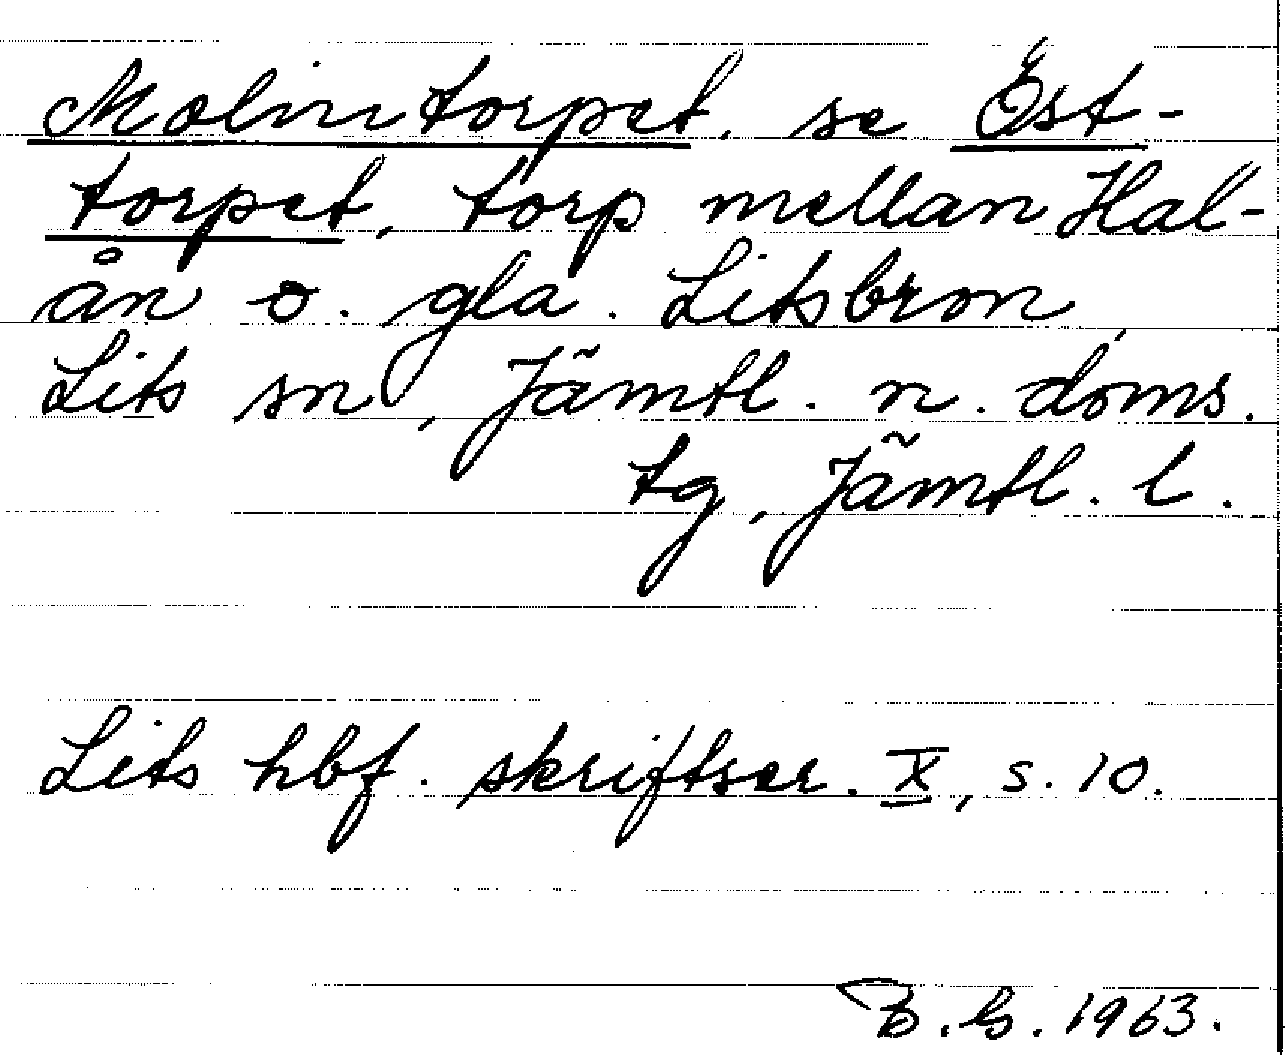 Molintorpet, se Öst-
torpet, torp mellan Hal-
ån o. gla. Litsbron,
Lits sn, Jämtl. n. doms.
tg, Jämtl. l.
Lits hbf. skriftser. X, s. 10.
B. G. 1963.